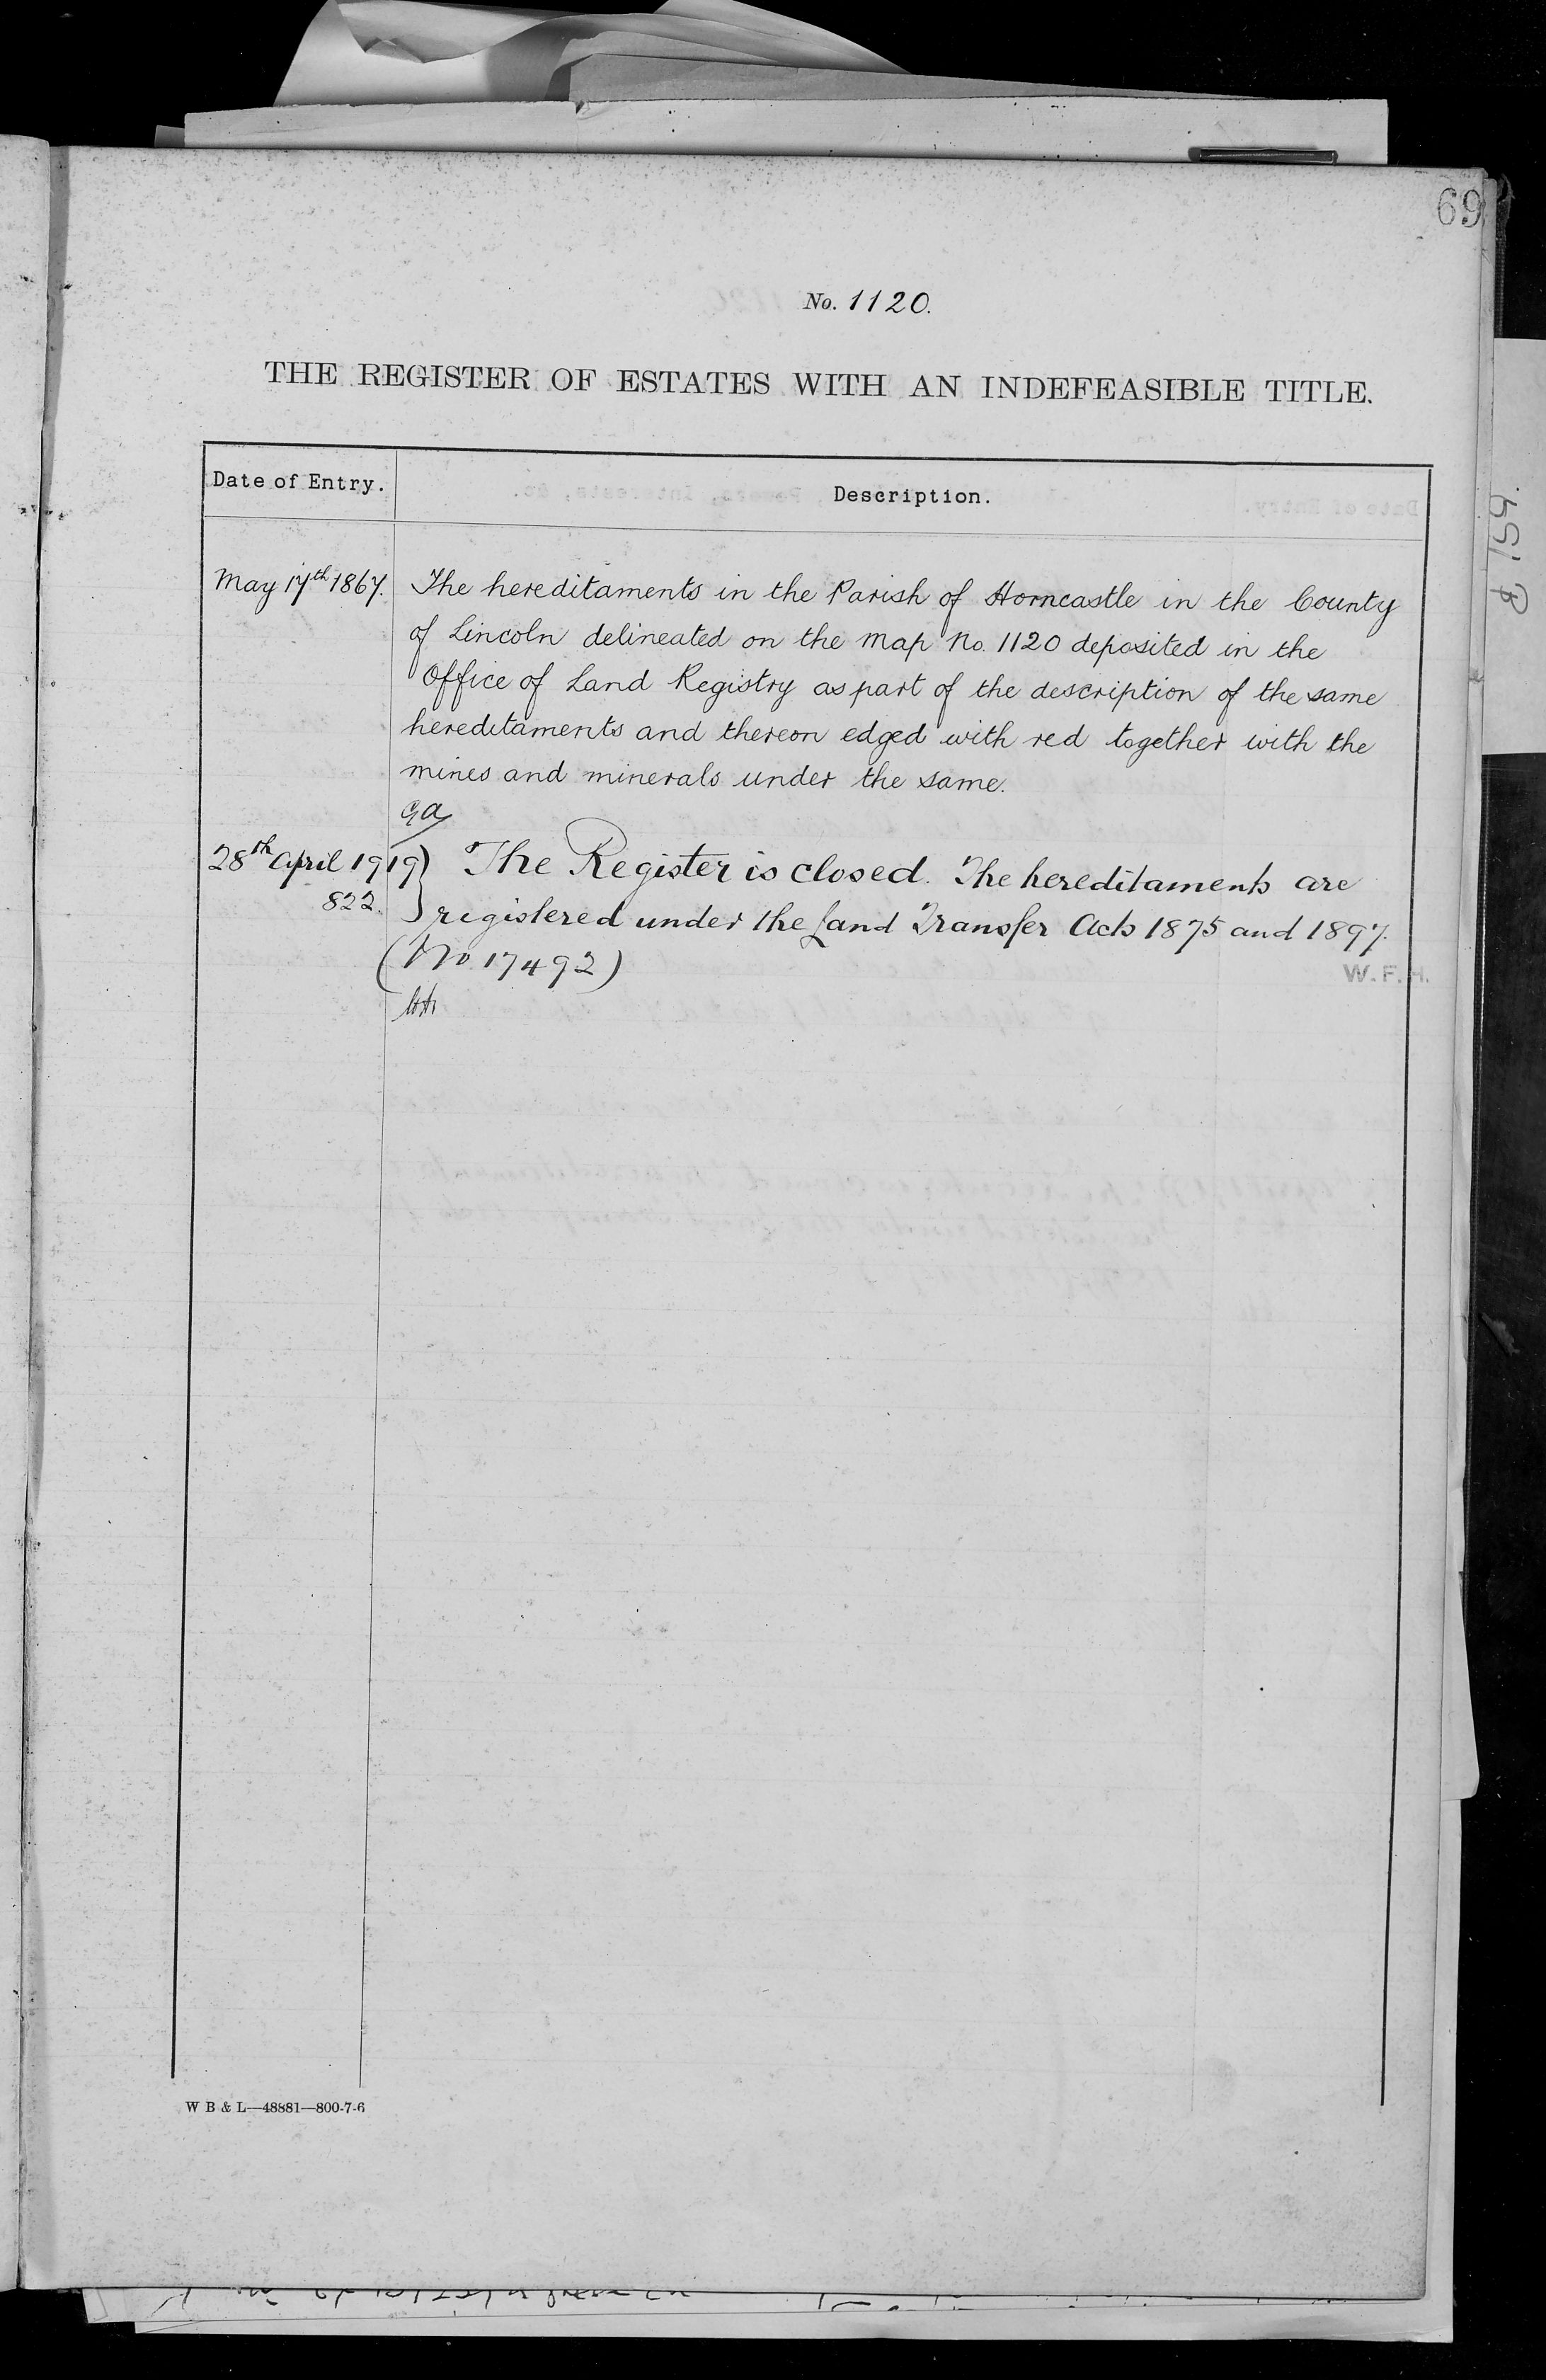 69
No. 1120.
THE REGISTER OF ESTATES WITH AN INDEFEASIBLE TITLE.
Date of Entry.
Description.
May 17th 1867.
The hereditaments in the Parish of Horncastle in the County
of Lincoln delineated on the map No. 1120 deposited in the
Office of Land Registry as part of the description of the same
hereditaments and thereon edged with red together with the
mines and minerals under the same.
GA
28th April 1919
822.
The Register is closed. The hereditaments are
registered under the Land Transfer Acts 1875 and 1897.
(No 17492)
W.F.H.
W B & L—48881—800-7-6